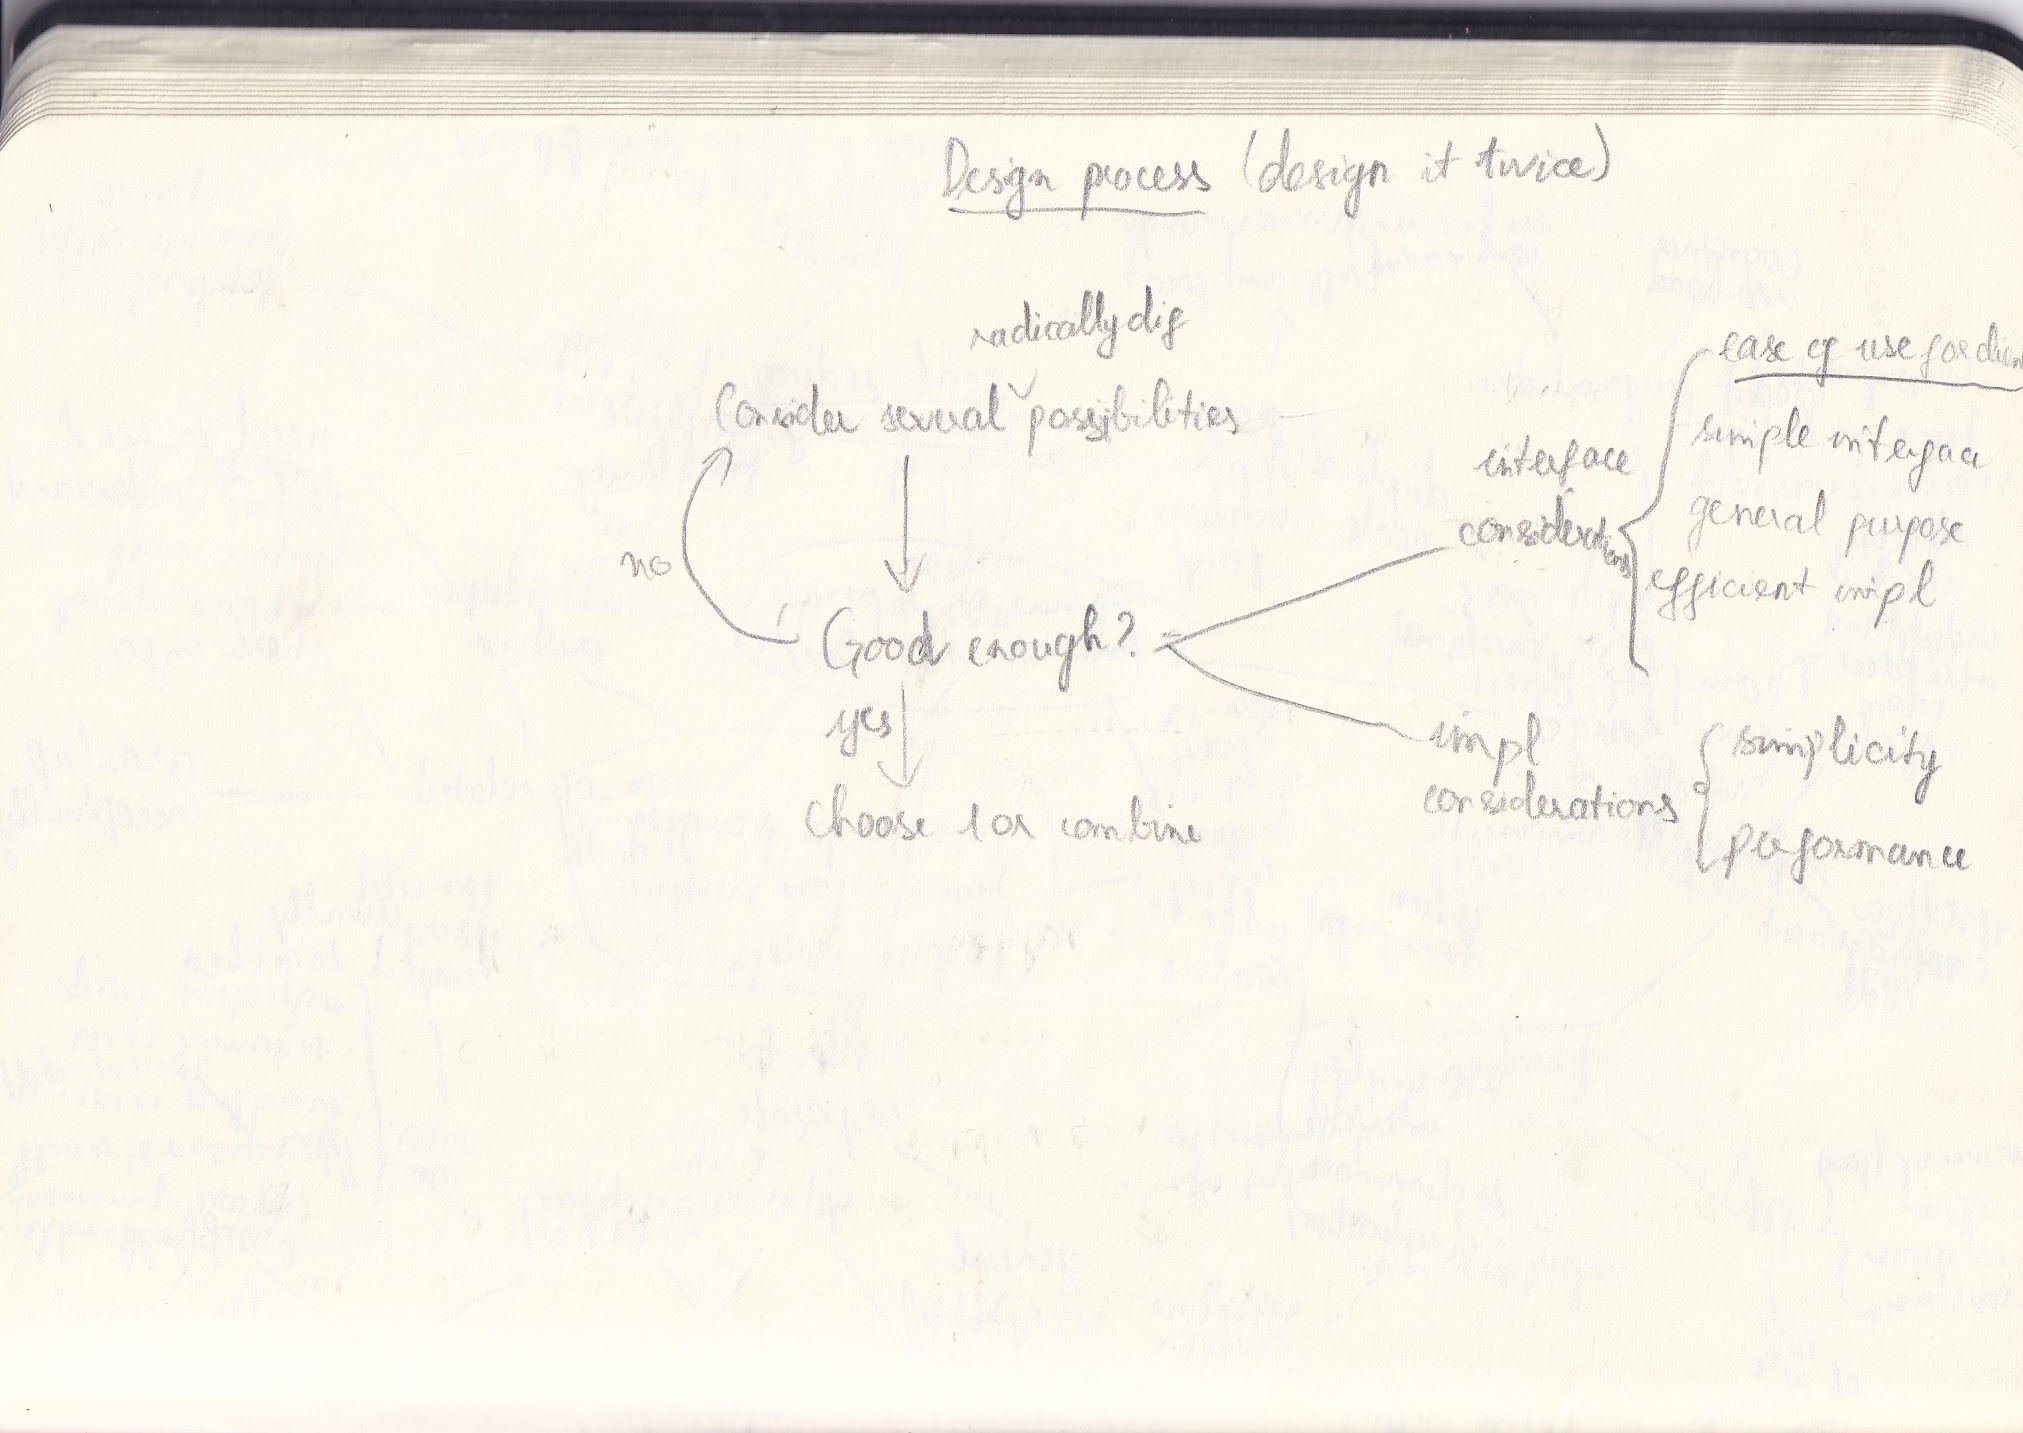 Design process (design it twice)
radically dif
Consider several possibilities
no
Good enough?
yes
Choose 1 or combine
interface
considerations
ease of use for clien
simple interface
general purpose
efficient impl
impl
considerations
simplicity
performance